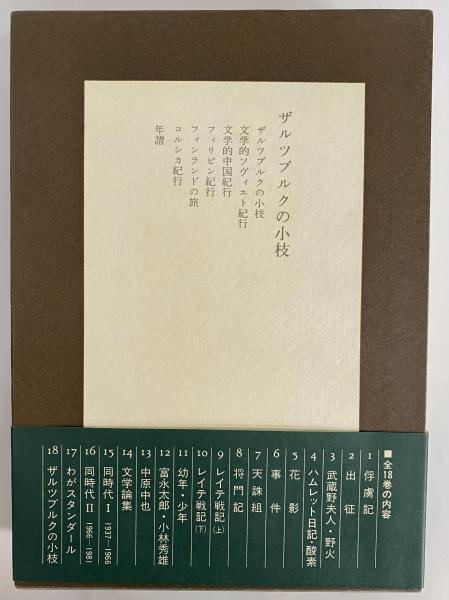 ザルツブルクの小枝
ザルツブルクの小枝
文学的ソヴィエト紀行
文学的中国紀行
フィリピン紀行
フィンランドの旅
コルシカ紀行
年譜
■全18巻の内容
1 俘虜記
2 出征
3 武蔵野夫人・野火
4 ハムレット日記・酸素
5 花影
6 事件
7 天誅組
8 将門記
9 レイテ戦記(上)
10 レイテ戦記(下)
11 幼年・少年
12 富永太郎・小林秀雄
13 中原中也
14 文学論集
15 同時代 I 1937—1966
16 同時代 II 1966—1981
17 わがスタンダール
18 ザルツブルクの小枝